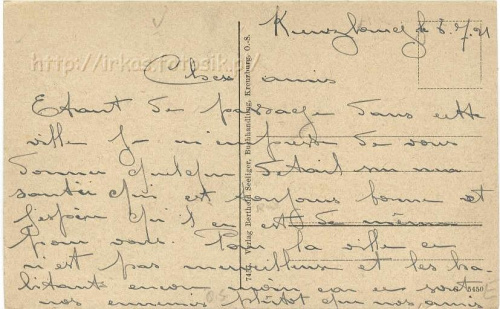 Kreuzburg le 5.7.21
http://irkos.fotosik.pl/
Chers amis
Etant de passage dans cette
ville je m'empresse de vous
donner quelque détail sur ma
santée qui est toujours bonne et
j'espère qu'il en est de même
pour vous. Pour la ville ce
n'est pas merveilleux et les ha-
bitants encore moin car ce sont
nos ennemis plutôt que nos amis
7457. Verlag Berthold Seeliger, Buchhandlung, Kreuzburg, O.-S.
8450